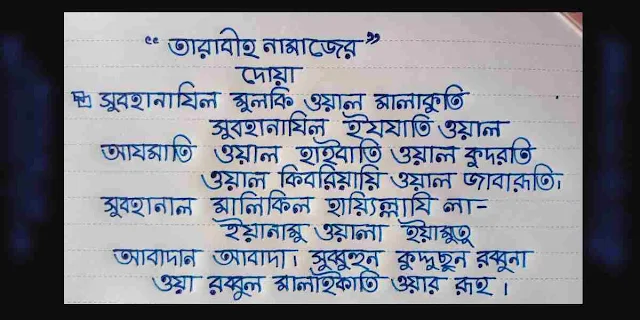 “ তারাবীহ নামাজের ”
দোয়া
সুবহানাযিল মুলকি ওয়াল মালাকুতি
সুবহানাযিল ইযযাতি ওয়াল
আযমাতি ওয়াল হাইবাতি ওয়াল কুদরতি
ওয়াল কিবরিয়ায়ি ওয়াল জাবারূতি।
সুবহানাল মালিকিল হায়্যিল্লাযি লা-
ইয়ানামু ওয়ালা ইয়ামুতু
আবাদান আবাদা। সুব্বুহুন কুদ্দুছুন রব্বুনা
ওয়া রব্বুল মালাইকাতি ওয়ার রূহ।